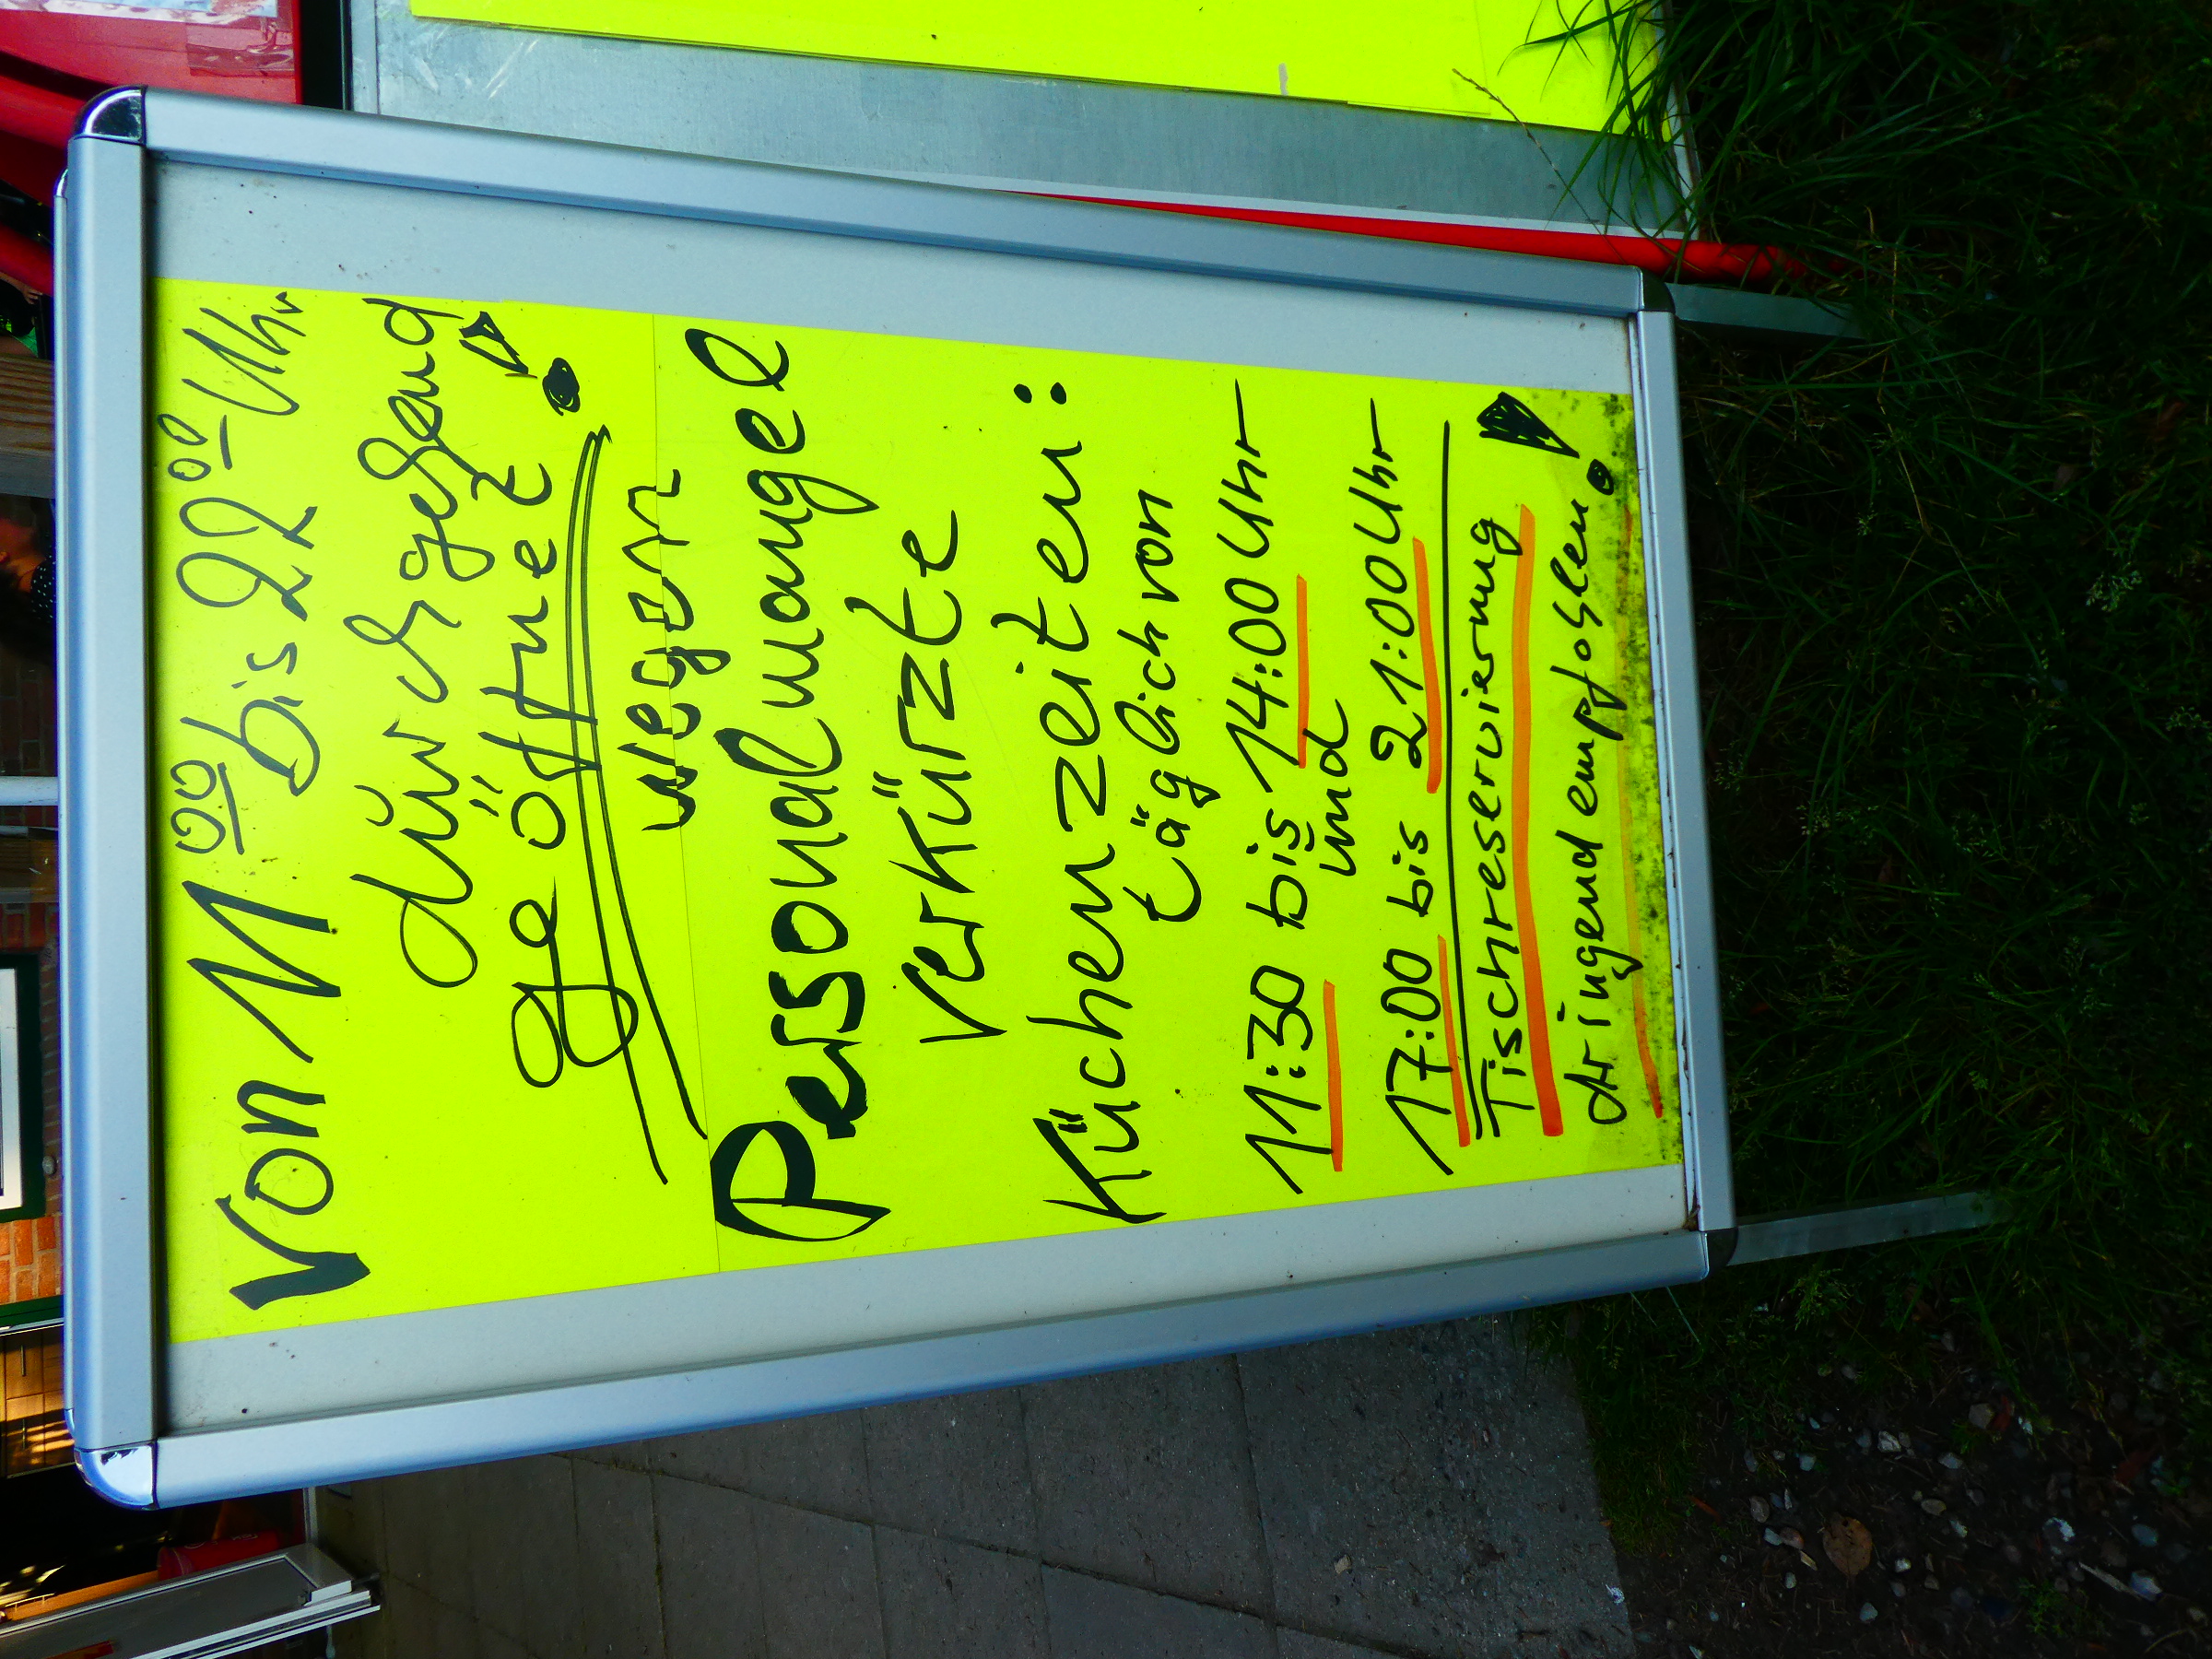 Von 11 00 bis 22 00 Uhr
durchgehend
geöffnet!
wegen
Personalmangel
verkürzte
Küchenzeiten:
täglich von
11:30 bis 14:00 Uhr
und
17:00 bis 21:00 Uhr
Tischreservierung
dringend empfohlen!